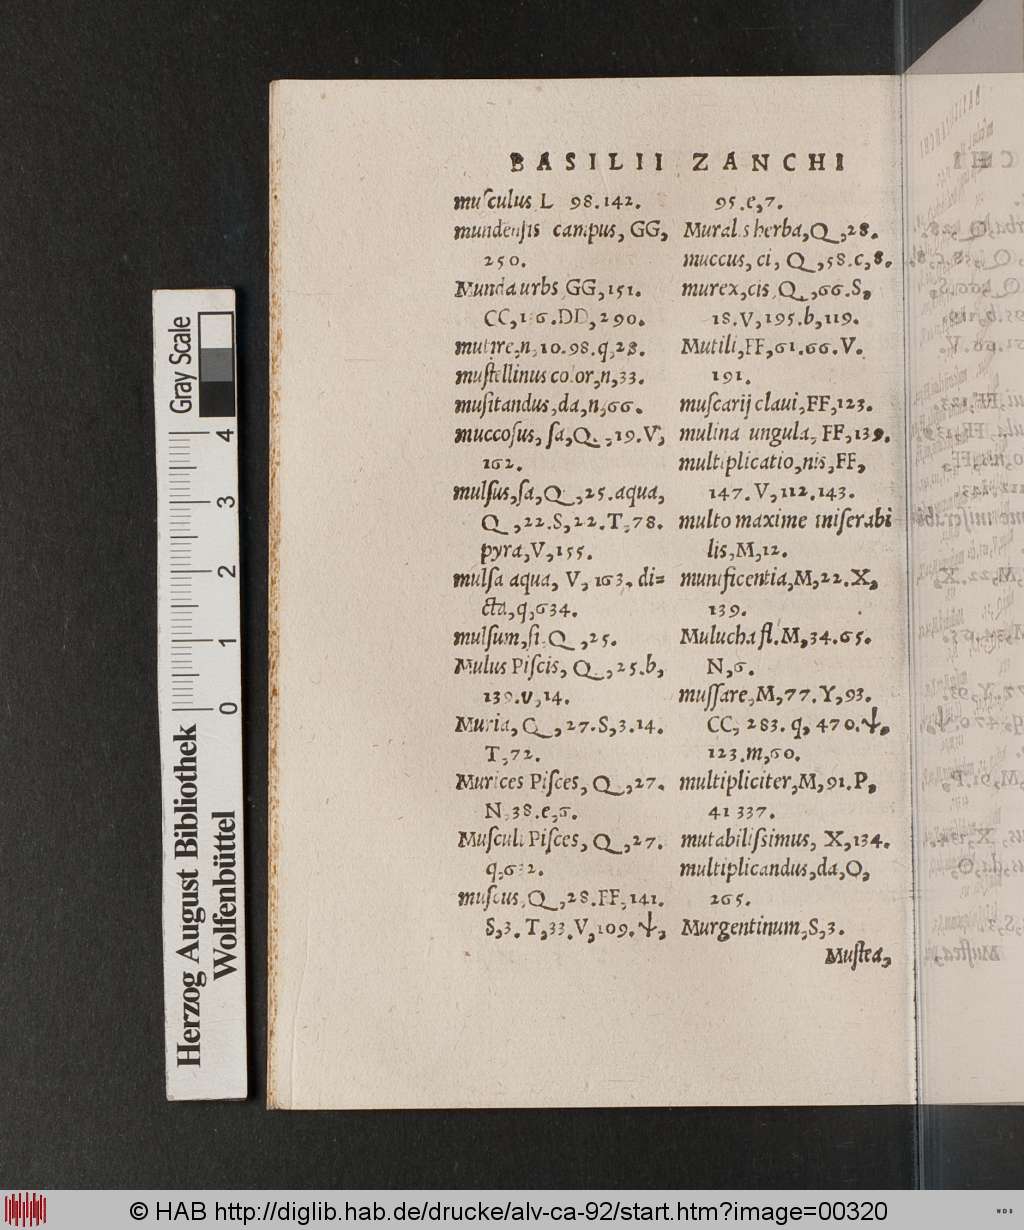 BASILII ZANCHI
muſculus, L 98.142.
mundenſis campus, GG,
250.
Munda urbs, GG,151.
CC,186.DD,290.
mutire,n,10.98.q,28.
muſtellinus color,n,33.
muſitandus,da,n,66.
muccoſus, ſa,Q,19.V,
162.
mulſus,ſa,Q,25.aqua,
Q,22.S,22.T,78.
pyra,V,155.
mulſa aqua, V, 163. di=
cta,q,634.
mulſum,ſi,Q,25.
Mulus Piſcis, Q,25.b,
139.v,14.
Muria, Q,27.S,3.14.
T,72.
Murices Piſces, Q,27.
N,38.e,6.
Muſculi Piſces, Q,27.
q,632.
muſcus,Q,28.FF,141.
S,3.T,33.V,109.🜊,
95.e,7.
Muralis herba,Q,28.
muccus, ci, Q,58.c,8.
murex,cis,Q,66.S,
18.V,195.b,119.
Mutili,FF,61.66.V.
191.
muſcarij claui,FF,123.
mulina ungula, FF,139.
multiplicatio,nis,FF,
147.V,112.143.
multo maxime miſerabi
lis,M,12.
munificentia,M,22.X,
139.
Mulucha fl.M,34.65.
N,6.
muſſare,M,77.Y,93.
CC, 283. q, 470.
123.m,60.
multipliciter,M,91.P,
41 337.
mutabiliſsimus, X,134.
multiplicandus,da,O,
265.
Murgentinum,S,3.
Muſtea,
Gray Scale
4
3
2
1
0
Herzog August Bibliothek
Wolfenbüttel
© HAB http://diglib.hab.de/drucke/alv-ca-92/start.htm?image=00320